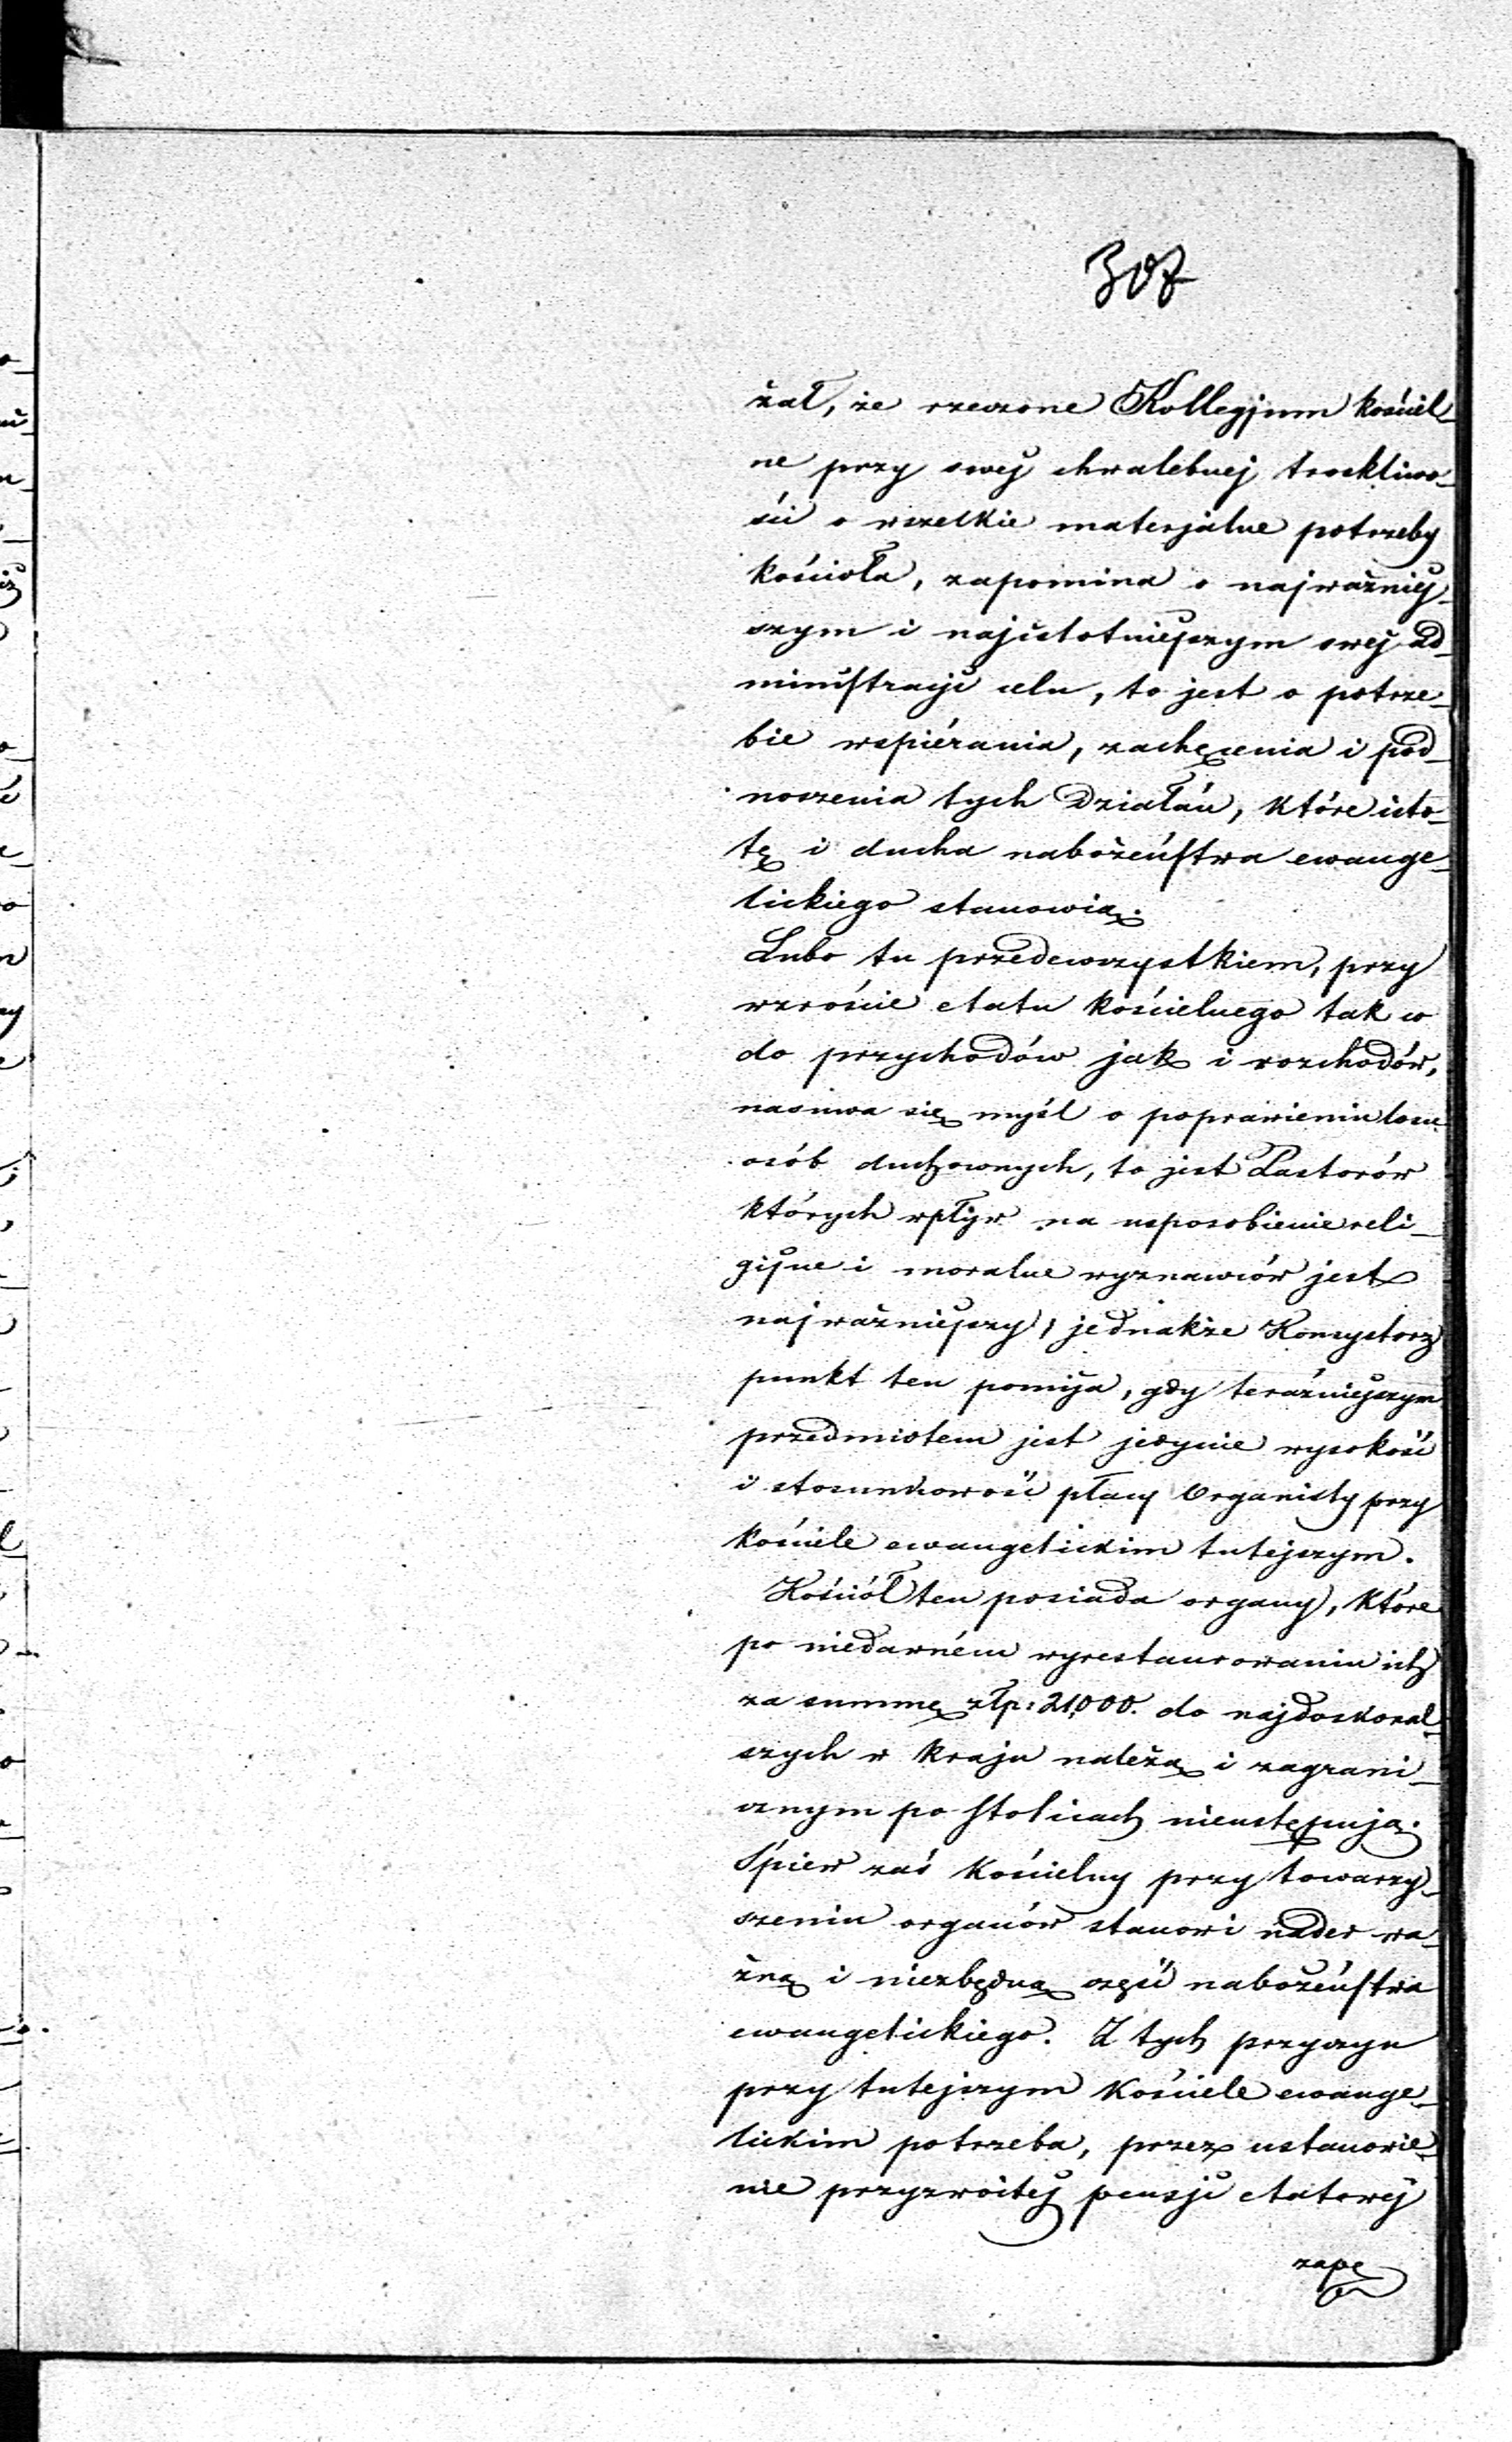 307
żał, że rzeczone Kollegjum kościel-
ne przy swej chwalebnej troskliwo-
ści o wszelkie materjalne potrzeby
kościoła, zapomina o najważniej-
szym i najistotniejszym swej ad-
ministracji celu, to jest o potrze-
bie wspiérania, zachęcenia i pod-
noszenia tych działań, które isto-
tę i ducha nabożeństwa ewange-
lickiego stanowią.
Lubo tu przedewszystkiem, przy
wzroście etatu kościelnego tak co
do przychodów jak i rozchodów,
nasuwa się myśl o poprawieniu losu
osób duchownych, to jest Pastorów
których wpływ na usposobienie reli-
gijne i moralne wyznawców jest
najważniejszy, jednakże Konsystorz
punkt ten pomija, gdy teraźniejszym
przedmiotem jest jedynie wysokość
i stosunkowość płacy Organisty przy
kościele ewangelickim tutejszym.
Kościół ten posiada organy, które
po niedawném wyrestaurowaniu ich
za summę złp: 21,000. do najdoskonal-
szych w kraju należą i zagrani-
cznym po stolicach nieustępują.
Śpiew zaś kościelny przy towarzy-
szeniu organów stanowi nader wa-
żną i niezbędną część nabożeństwa
ewangelickiego. Z tych przyczyn
przy tutejszym kościele ewange-
lickim potrzeba, przez ustanowie-
nie przyzwoitej pensji etatowej
zape